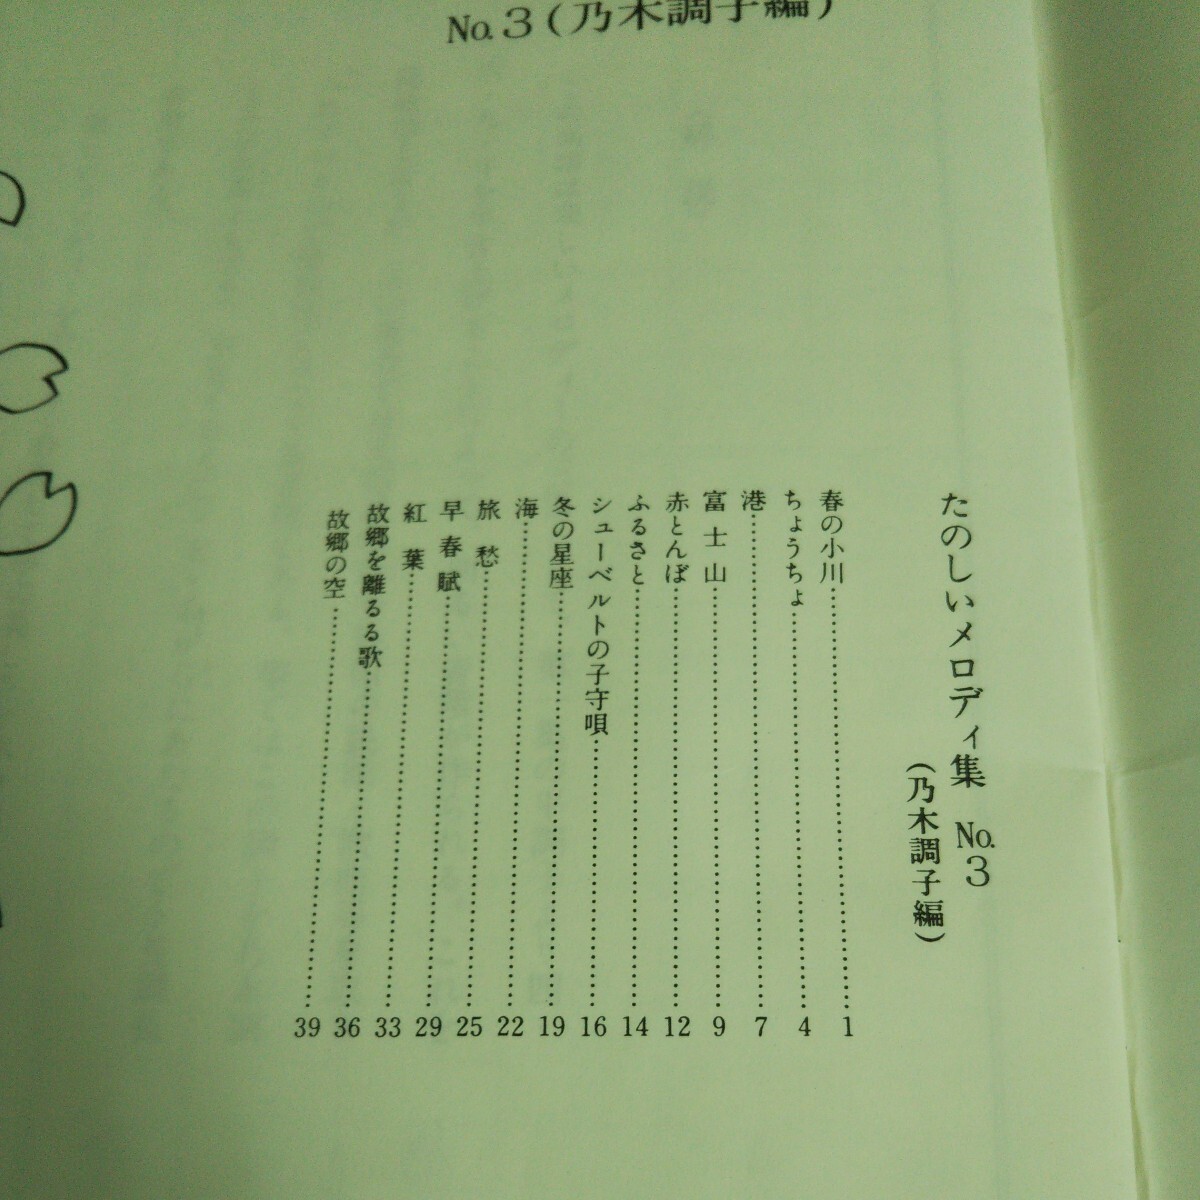 No.3(乃木調子編)
たのしいメロディ集 No.3
(乃木調子編)
春の小川……1
ちょうちょ……4
港……7
富士山……9
赤とんぼ……12
ふるさと……14
シューベルトの子守唄……16
冬の星座……19
海……22
旅愁……25
早春賦……29
紅葉……33
故郷を離るる歌……36
故郷の空……39